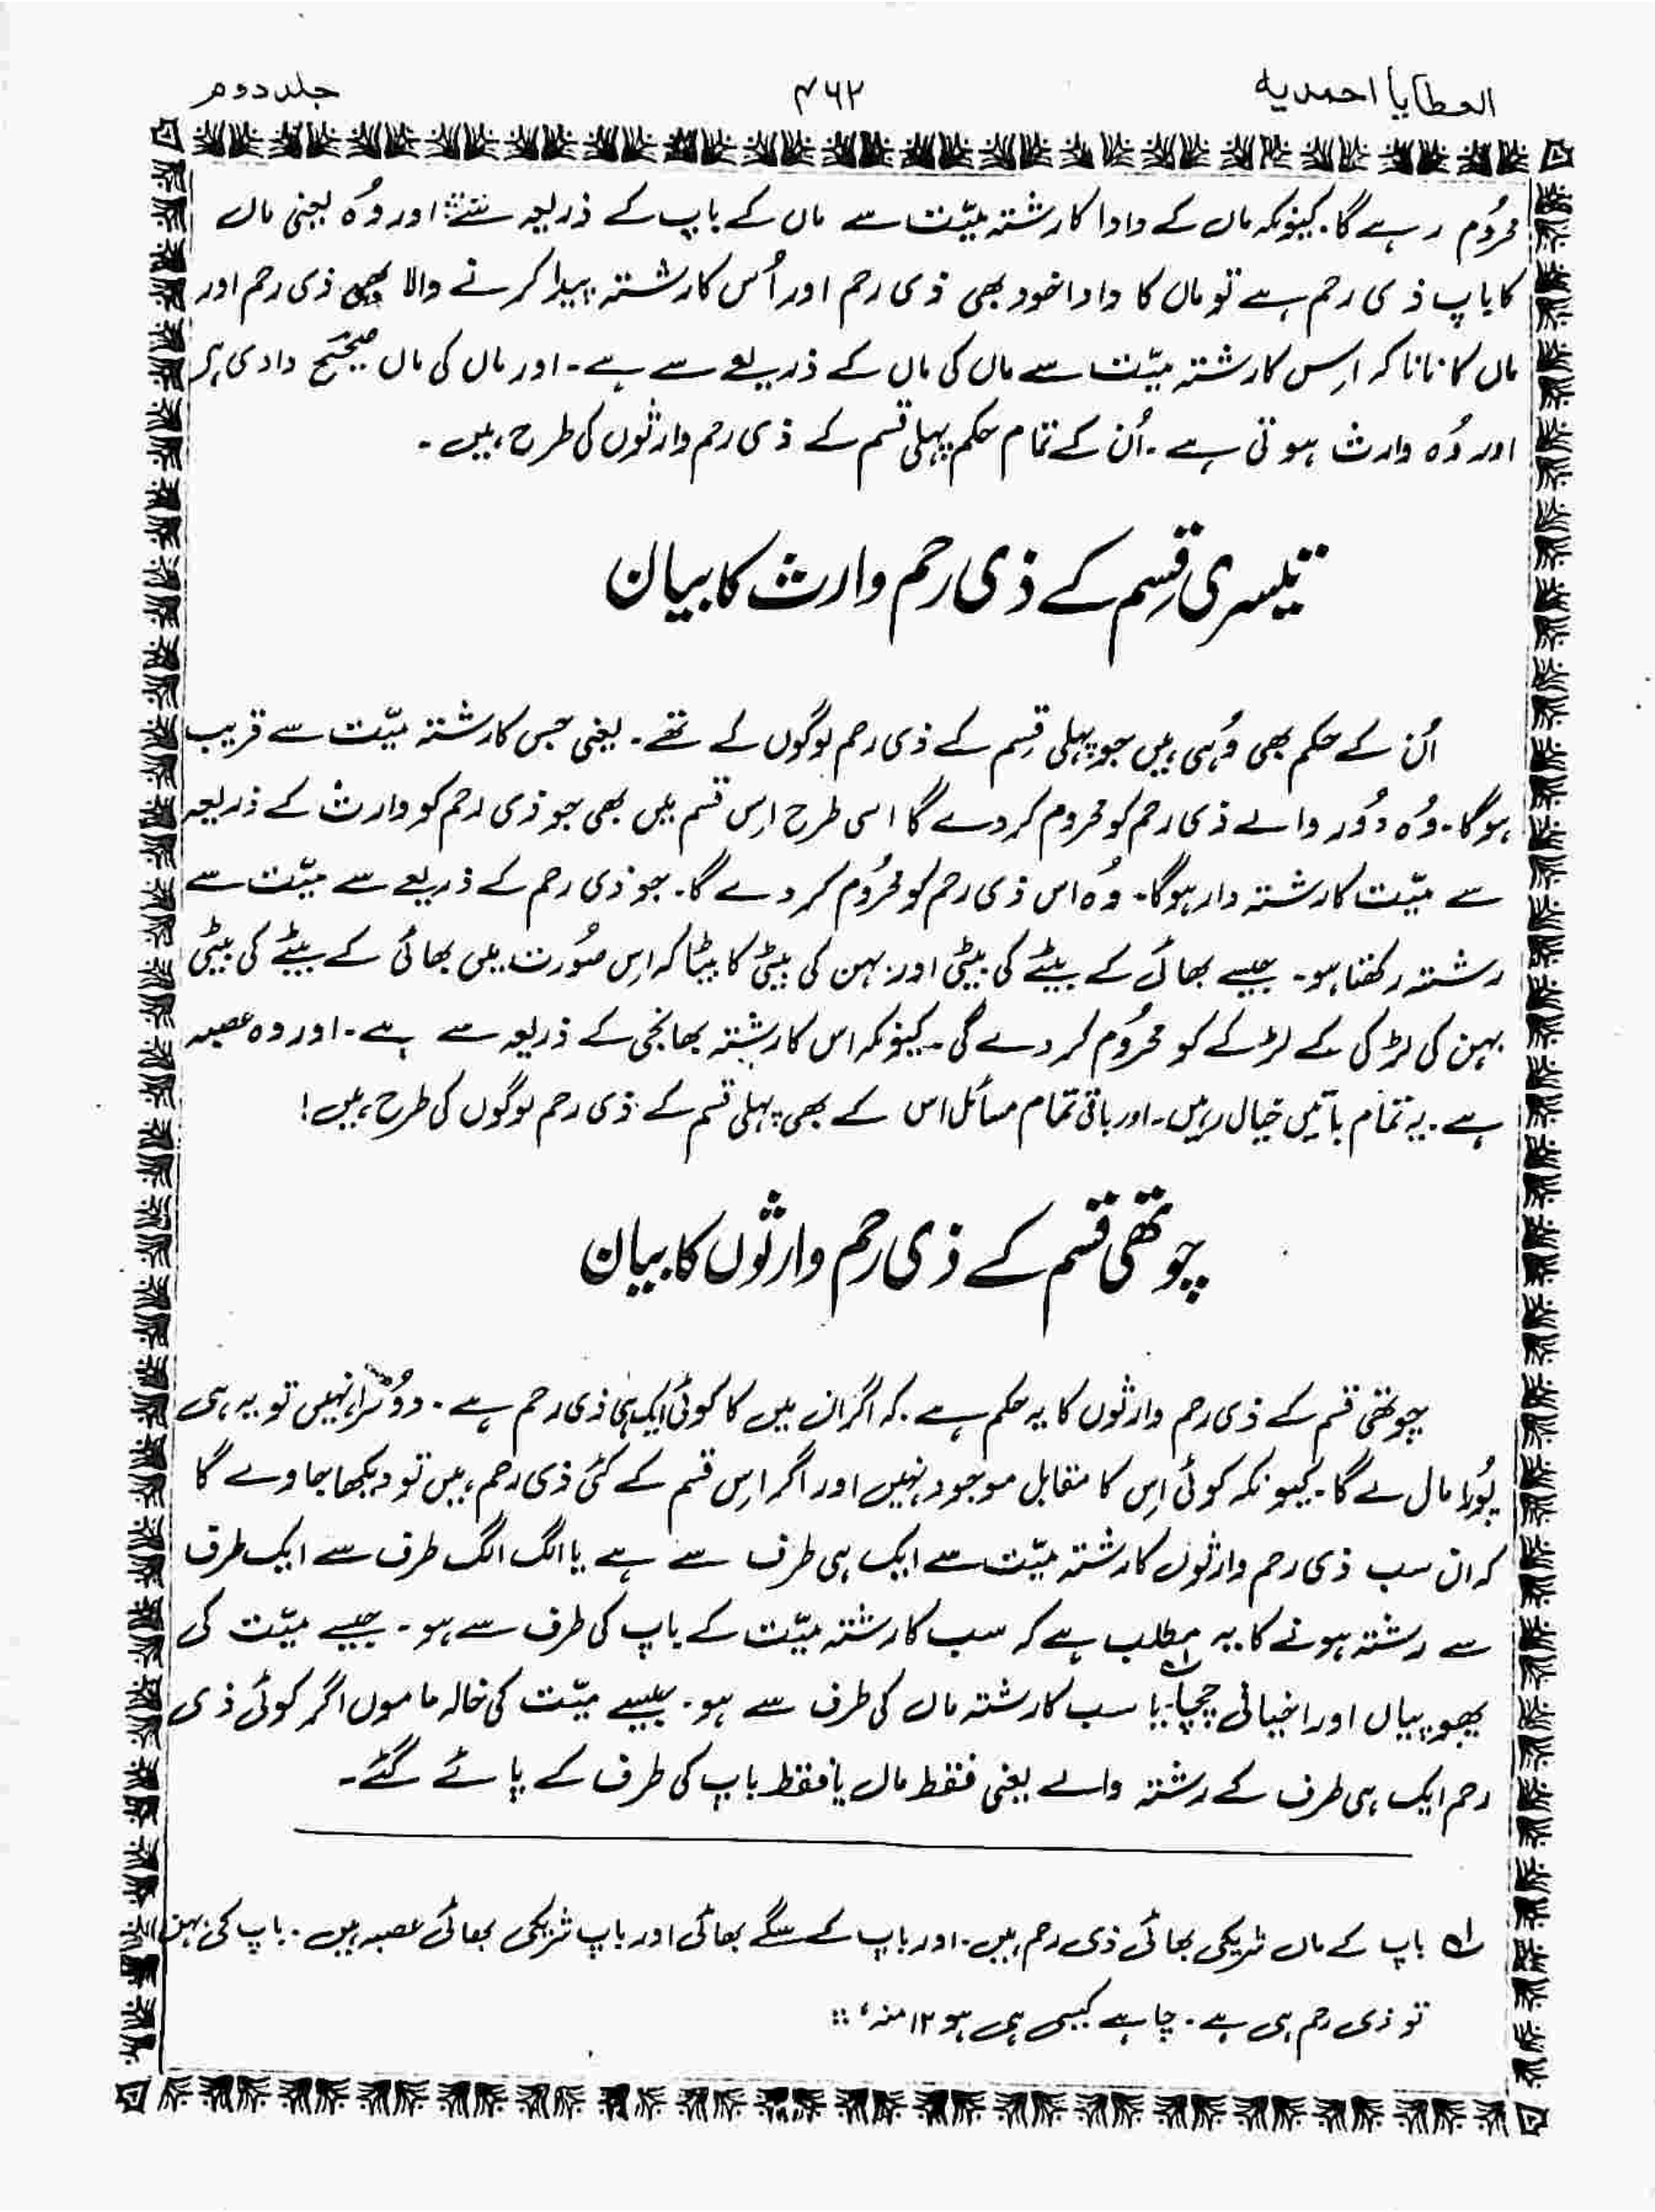 العطایا احمدیہ ۴۶۲ جلد دوم
محرُوم رہے گا۔ کیونکہ ماں کے دادا کا رشتہ میّت سے ماں کے باپ کے ذریعہ سے اور وُہ یعنی ماں
کا باپ ذی رحم ہے تو ماں کا دادا خود بھی ذی رحم اور اُس کا رشتہ پیدا کرنے والا بھی ذی رحم اور
ماں کا نانا کہ اِس کا رشتہ میّت سے ماں کی ماں کے ذریعے سے ہے۔ اور ماں کی ماں صحیح دادی ہے
اور وُہ وارث ہوتی ہے۔ اُن کے تمام حکم پہلی قسم کے ذی رحم وارثوں کی طرح ہیں۔
تیسری قِسم کے ذی رحم وارث کا بیان
اُن کے حکم بھی وُہی ہیں جو پہلی قِسم کے ذی رحم لوگوں کے تھے۔ یعنی جس کا رشتہ میّت سے قریب
ہوگا۔ وُہ دُور والے ذی رحم کو محروم کردے گا اسی طرح اِس قسم میں بھی جو ذی رحم کو وارث کے ذریعہ
سے میّت کا رشتہ دار ہوگا۔ وُہ اس ذی رحم کو محرُوم کر دے گا۔ جو ذی رحم کے ذریعے سے میّت سے
رشتہ رکھتا ہو۔ جیسے بھائی کے بیٹے کی بیٹی اور بہن کی بیٹی کا بیٹا کہ اِس صُورت میں بھائی کے بیٹے کی بیٹی
بہن کی لڑکی کے لڑکے کو محرُوم کر دے گی۔ کیونکہ اس کا رشتہ بھانجی کے ذریعہ سے ہے۔ اور وہ عصبہ
ہے۔ یہ تمام باتیں خیال رہیں۔ اور باقی تمام مسائل اس کے بھی پہلی قسم کے ذی رحم لوگوں کی طرح ہیں!
چوتھی قسم کے ذی رحم وارثوں کا بیان
چوتھی قسم کے ذی رحم وارثوں کا یہ حکم ہے۔ کہ اگر ان میں کا کوئی ایک ہی ذی رحم ہے۔ دُوسرا نہیں تو یہ ہی
پُورا مال لے گا۔ کیونکہ کوئی اِس کا مقابل موجود نہیں اور اگر اِس قسم کے کئی ذی رحم ہیں تو دیکھا جاوے گا
کہ ان سب ذی رحم وارثوں کا رشتہ میّت سے ایک ہی طرف سے ہے یا الگ الگ طرف سے ایک طرف
سے رشتہ ہونے کا یہ مطلب ہے کہ سب کا رشتہ میّت کے باپ کی طرف سے ہو۔ جیسے میّت کی
پھوپیاں اور اخیافی چچا لہ یا سب کا رشتہ ماں کی طرف سے ہو۔ جیسے میّت کی خالہ ماموں اگر کوئی ذی
رحم ایک ہی طرف کے رشتہ والے یعنی فقط ماں یا فقط باپ کی طرف کے پائے گئے۔
لہ باپ کے ماں شریکی بھائی ذی رحم ہیں۔ اور باپ کے سگے بھائی اور باپ شریکی بھائی عصبہ ہیں۔ باپ کی بہن
تو ذی رحم ہی ہے۔ چاہے کیسی ہی ہو ۱۲ منہ